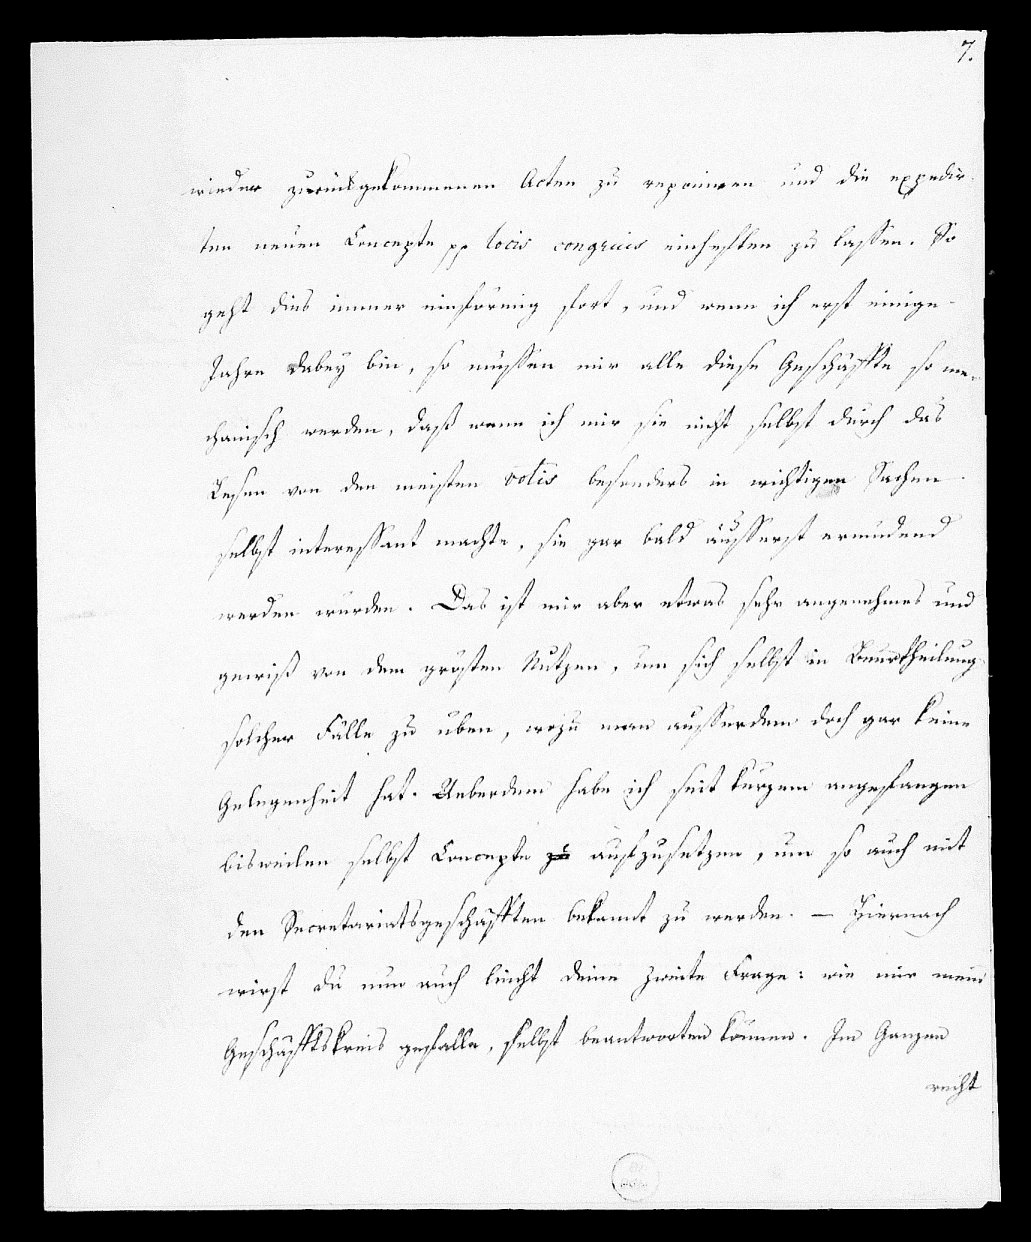 7.
wieder zurückgekommenen Acten zu reponiren und die expedir-
ten neuen Concepte pp locis congruis einheften zu lassen. So
geht dies immer einförmig fort, und wenn ich erst einige
Jahre dabey bin, so müssen mir alle diese Geschäffte so me-
chanisch werden, daß wenn ich mir sie nicht selbst durch das
Lesen von den meisten votis besonders in wichtigen Sachen
selbst interessant machte, sie gar bald äusserst ermüdend
werden würden. Das ist mir aber etwas sehr angenehmes und
gewiß von dem grösten Nutzen, um sich selbst in Beurtheilung
solcher Fälle zu üben, wozu man ausserdem doch gar keine
Gelegenheit hat. Ueberdem habe ich seit kurzem angefangen
bisweilen selbst Concepte zu aufzusetzen, um so auch mit
den Secretariatsgeschäfften bekannt zu werden. — Hiernach
wirst du nun auch leicht deine zweite Frage: wie mir mein
Geschäfftskreis gefalle, selbst beantworten können. Im Ganzen
recht